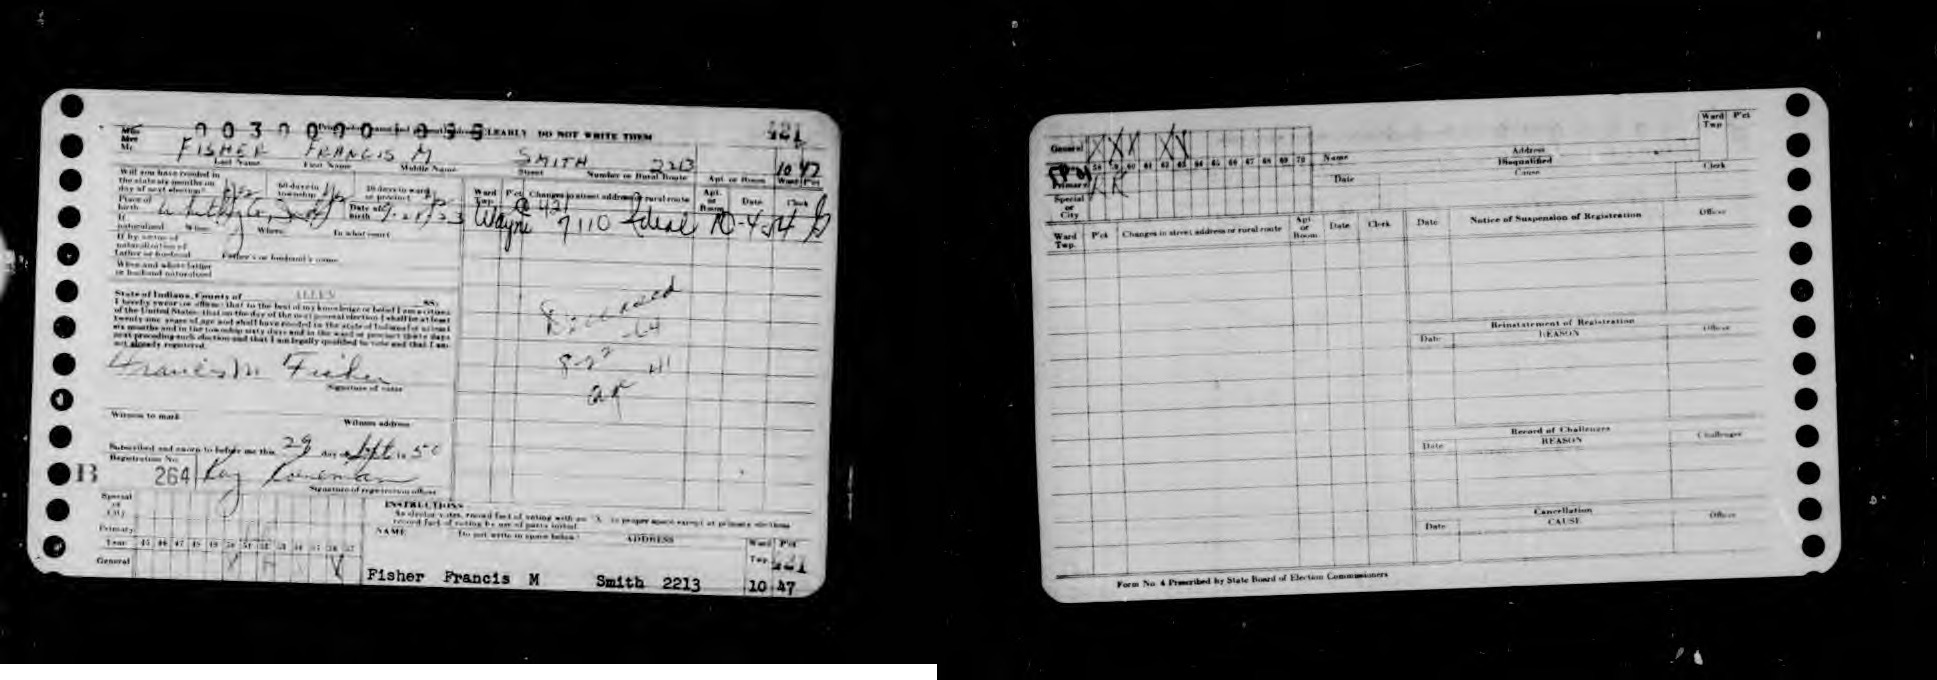 CLEARLY DO NOT WRITE THEM
421
Mr.
FISHER FRANCIS M SMITH 2213 10 47
Last Name First Name Middle Name Street Number or Rural Route Apt. or Room Ward P'ct
Will you have resided in
the state six months on
day of next election?
60 days in
township
30 days in ward
or precinct
Place of
birth
Date of
birth 9-21-23
If
naturalized When Where In what court
If by virtue of
naturalization of
father or husband Father's or husband's name
When and where father
or husband naturalized
Ward
Twp. P'ct Changes in street address or rural route Apt.
or
Room Date Clerk
Wayne 421 7110 Ideal 10-4-54
State of Indiana, County of ALLEN SS:
I hereby swear (or affirm) that to the best of my knowledge or belief I am a citizen
of the United States; that on the day of the next general election I shall be at least
twenty-one years of age and shall have resided in the state of Indiana for at least
six months and in the township sixty days and in the ward or precinct thirty days
next preceding such election and that I am legally qualified to vote and that I am
not already registered.
Francis M Fisher
Signature of voter
Deceased
Witness to mark Witness address
Subscribed and sworn to before me this 29 day of Sept 19 50
Registration No.
B 264 Ray
Signature of registration officer
Special
or
City
Primary
Year 45 46 47 48 49 50 51 52 53 54 55 56 57
General
INSTRUCTIONS
As elector votes, record fact of voting with an X in proper space except at primary elections
record fact of voting by use of party initial.
NAME Do not write in space below ADDRESS Ward
Twp. P'ct
421
Fisher Francis M Smith 2213 10 47
General
58 59 60 61 62 63 64 65 66 67 68 69 70
Primary R R
Special
or
City
Name Address
Disqualified
Date Cause Clerk
Ward
Twp P'ct
Ward
Twp. P'ct Changes in street address or rural route Apt.
or
Room Date Clerk
Date Notice of Suspension of Registration Officer
Reinstatement of Registration
Date REASON Officer
Record of Challenges
Date REASON Challenger
Cancellation
Date CAUSE Officer
Form No. 4 Prescribed by State Board of Election Commissioners